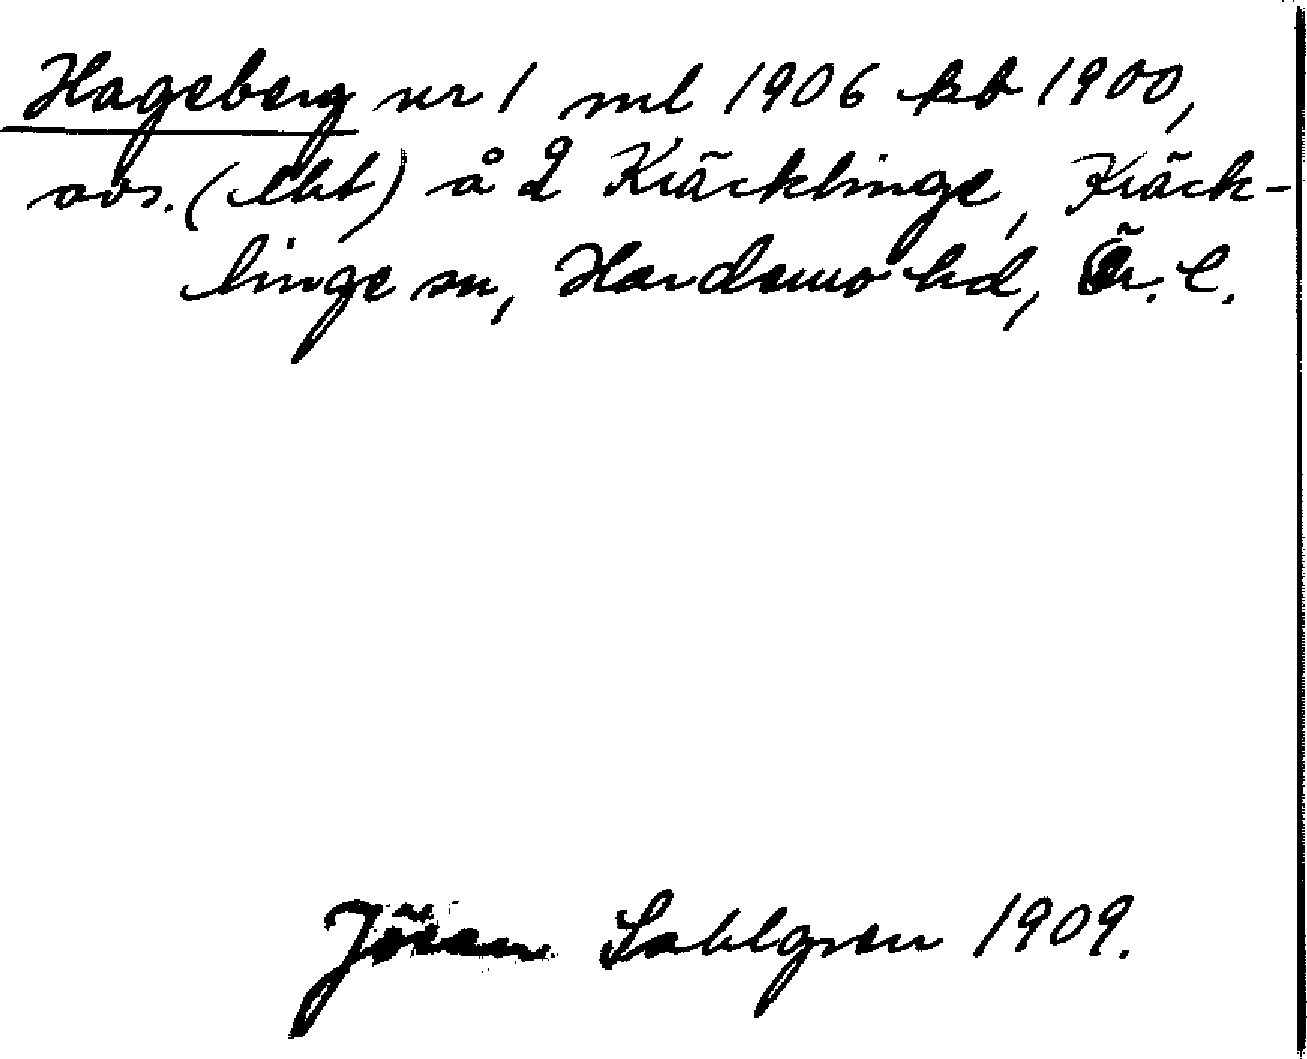 Hageberg nr 1 ml 1906 kb 1900,
avs. (lht) å 2 Kräcklinge, Kräck-
linge sn, Hardemo hd, Ör. l.
Jöran Sahlgren 1909.